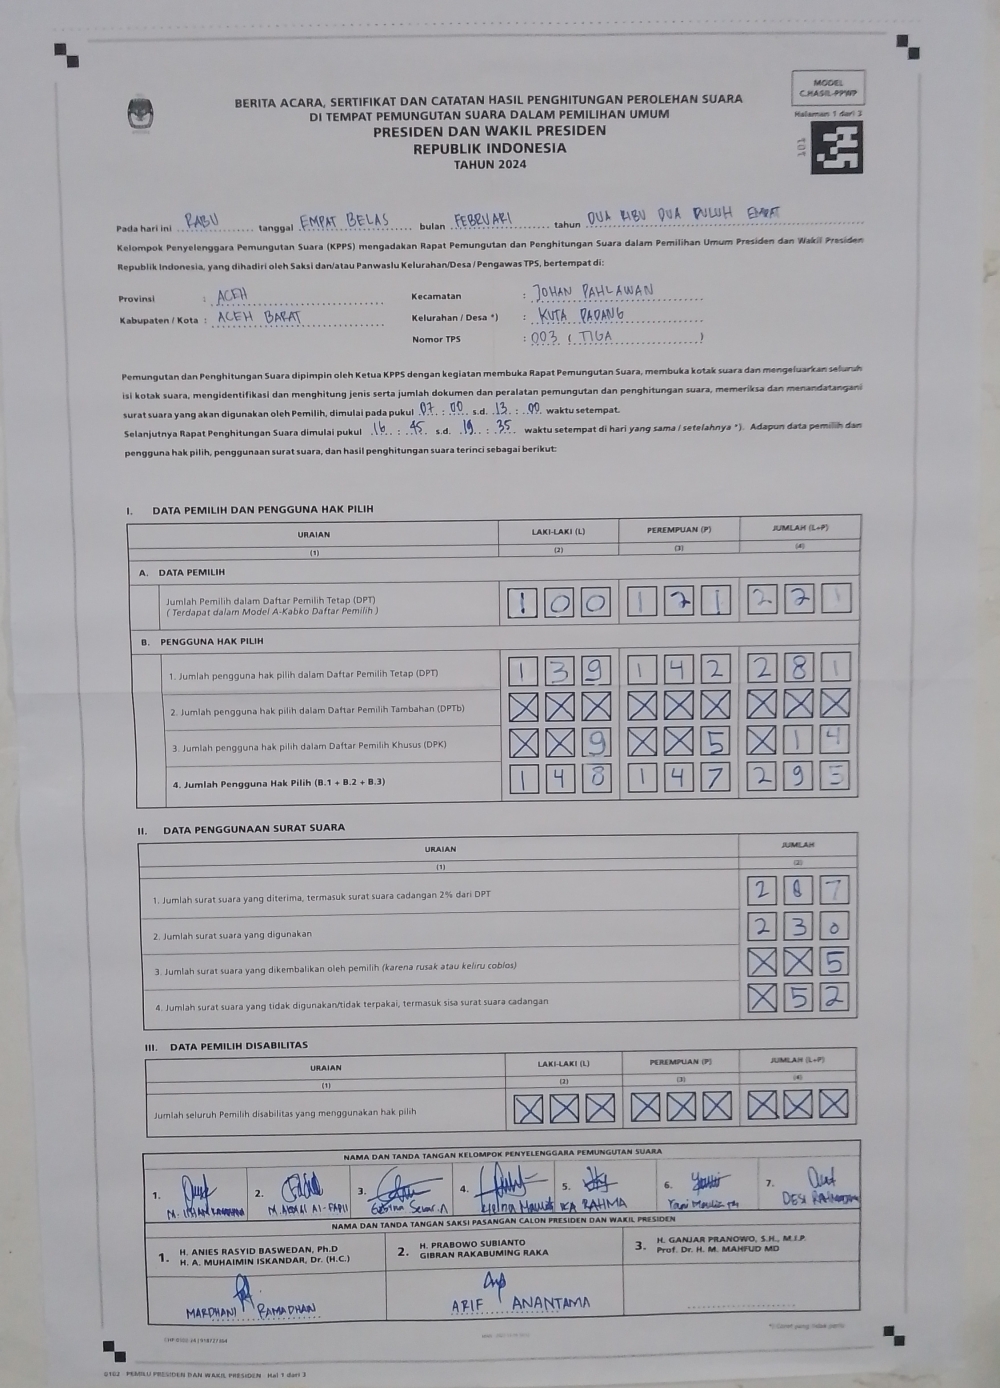 MODEL
C.HASIL-PPWP
Halaman 1 dari 3
101
BERITA ACARA, SERTIFIKAT DAN CATATAN HASIL PENGHITUNGAN PEROLEHAN SUARA
DI TEMPAT PEMUNGUTAN SUARA DALAM PEMILIHAN UMUM
PRESIDEN DAN WAKIL PRESIDEN
REPUBLIK INDONESIA
TAHUN 2024
Pada hari ini RABU tanggal EMPAT BELAS bulan FEBRUARI tahun DUA RIBU DUA PULUH EMPAT
Kelompok Penyelenggara Pemungutan Suara (KPPS) mengadakan Rapat Pemungutan dan Penghitungan Suara dalam Pemilihan Umum Presiden dan Wakil Presiden
Republik Indonesia, yang dihadiri oleh Saksi dan/atau Panwaslu Kelurahan/Desa / Pengawas TPS, bertempat di:
Provinsi : ACEH Kecamatan : JOHAN PAHLAWAN
Kabupaten / Kota : ACEH BARAT Kelurahan / Desa *) : KUTA PADANG
Nomor TPS : 003 ( TIGA )
Pemungutan dan Penghitungan Suara dipimpin oleh Ketua KPPS dengan kegiatan membuka Rapat Pemungutan Suara, membuka kotak suara dan mengeluarkan seluruh
isi kotak suara, mengidentifikasi dan menghitung jenis serta jumlah dokumen dan peralatan pemungutan dan penghitungan suara, memeriksa dan menandatangani
surat suara yang akan digunakan oleh Pemilih, dimulai pada pukul 07 : 00 s.d. 13 : 00 waktu setempat.
Selanjutnya Rapat Penghitungan Suara dimulai pukul 16 : 45 s.d. 19 : 35 waktu setempat di hari yang sama / setelahnya *). Adapun data pemilih dan
pengguna hak pilih, penggunaan surat suara, dan hasil penghitungan suara terinci sebagai berikut:
I. DATA PEMILIH DAN PENGGUNA HAK PILIH
URAIAN LAKI-LAKI (L) PEREMPUAN (P) JUMLAH (L+P)
(1) (2) (3) (4)
A. DATA PEMILIH
Jumlah Pemilih dalam Daftar Pemilih Tetap (DPT) 1 0 0 1 2 1 2 2 1
( Terdapat dalam Model A-Kabko Daftar Pemilih )
B. PENGGUNA HAK PILIH
1. Jumlah pengguna hak pilih dalam Daftar Pemilih Tetap (DPT) 1 3 9 1 4 2 2 8 1
2. Jumlah pengguna hak pilih dalam Daftar Pemilih Tambahan (DPTb) X X X X X X X X X
3. Jumlah pengguna hak pilih dalam Daftar Pemilih Khusus (DPK) X X 9 X X 5 X 1 4
4. Jumlah Pengguna Hak Pilih (B.1 + B.2 + B.3) 1 4 8 1 4 7 2 9 5
II. DATA PENGGUNAAN SURAT SUARA
URAIAN JUMLAH
(1) (2)
1. Jumlah surat suara yang diterima, termasuk surat suara cadangan 2% dari DPT 2 8 7
2. Jumlah surat suara yang digunakan 2 3 0
3. Jumlah surat suara yang dikembalikan oleh pemilih (karena rusak atau keliru coblos) X X 5
4. Jumlah surat suara yang tidak digunakan/tidak terpakai, termasuk sisa surat suara cadangan X 5 2
III. DATA PEMILIH DISABILITAS
URAIAN LAKI-LAKI (L) PEREMPUAN (P) JUMLAH (L+P)
(1) (2) (3) (4)
Jumlah seluruh Pemilih disabilitas yang menggunakan hak pilih X X X X X X X X X
NAMA DAN TANDA TANGAN KELOMPOK PENYELENGGARA PEMUNGUTAN SUARA
1. 2. 3. 4. 5. 6. 7.
RAHMA DESI
NAMA DAN TANDA TANGAN SAKSI PASANGAN CALON PRESIDEN DAN WAKIL PRESIDEN
1. H. ANIES RASYID BASWEDAN, Ph.D
H. A. MUHAIMIN ISKANDAR, Dr. (H.C.)
2. H. PRABOWO SUBIANTO
GIBRAN RAKABUMING RAKA
3. H. GANJAR PRANOWO, S.H., M.I.P.
Prof. Dr. H. M. MAHFUD MD
MARDHANI RAMADHAN ARIF ANANTAMA
*) Coret yang tidak perlu
0102 PEMILU PRESIDEN DAN WAKIL PRESIDEN Hal 1 dari 3